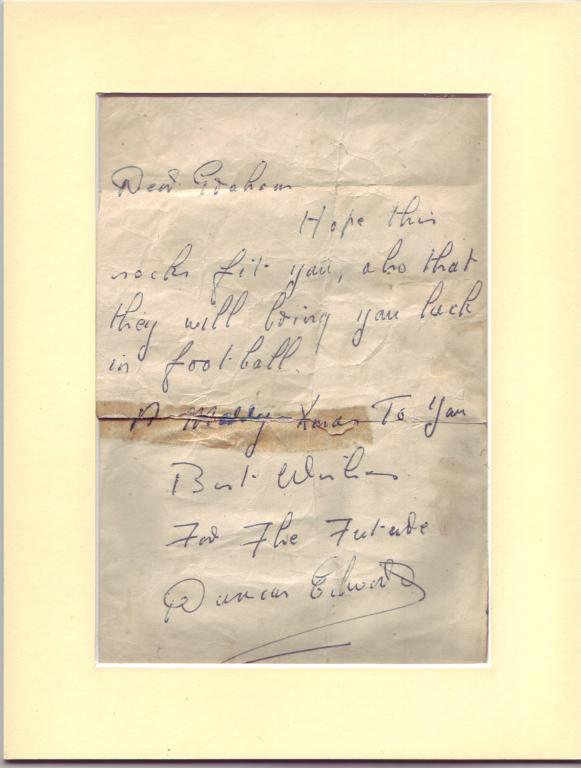 Dear Graham
Hope this
socks fit you, also that
they will bring you luck
in football.
A Merry Xmas To You
Best Wishes
For The Future
Duncan Edwards